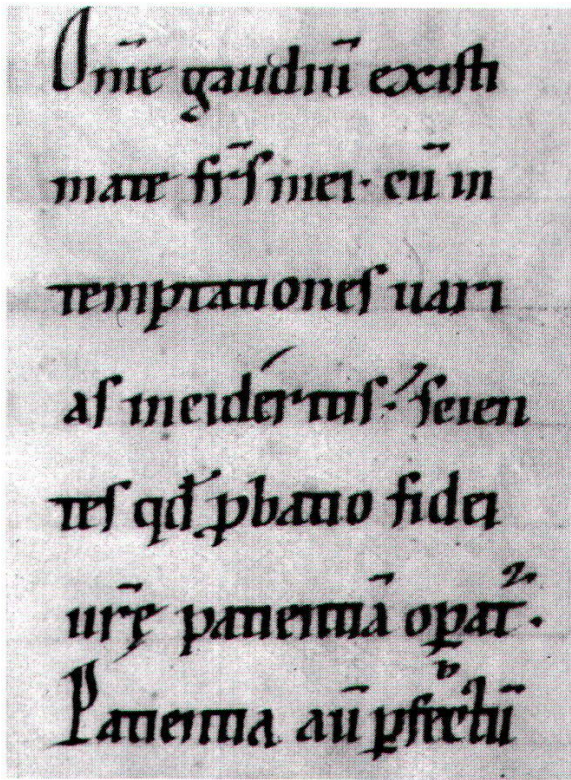 Om̄e gaudiū existi
mate fr̄s mei· cū in
temptationes uari
as incideritis·́ scien
tes qd̄ ꝓbatio fidei
ur̄ę patientiā op̱at᷑·
Patientia aū ꝑfectū